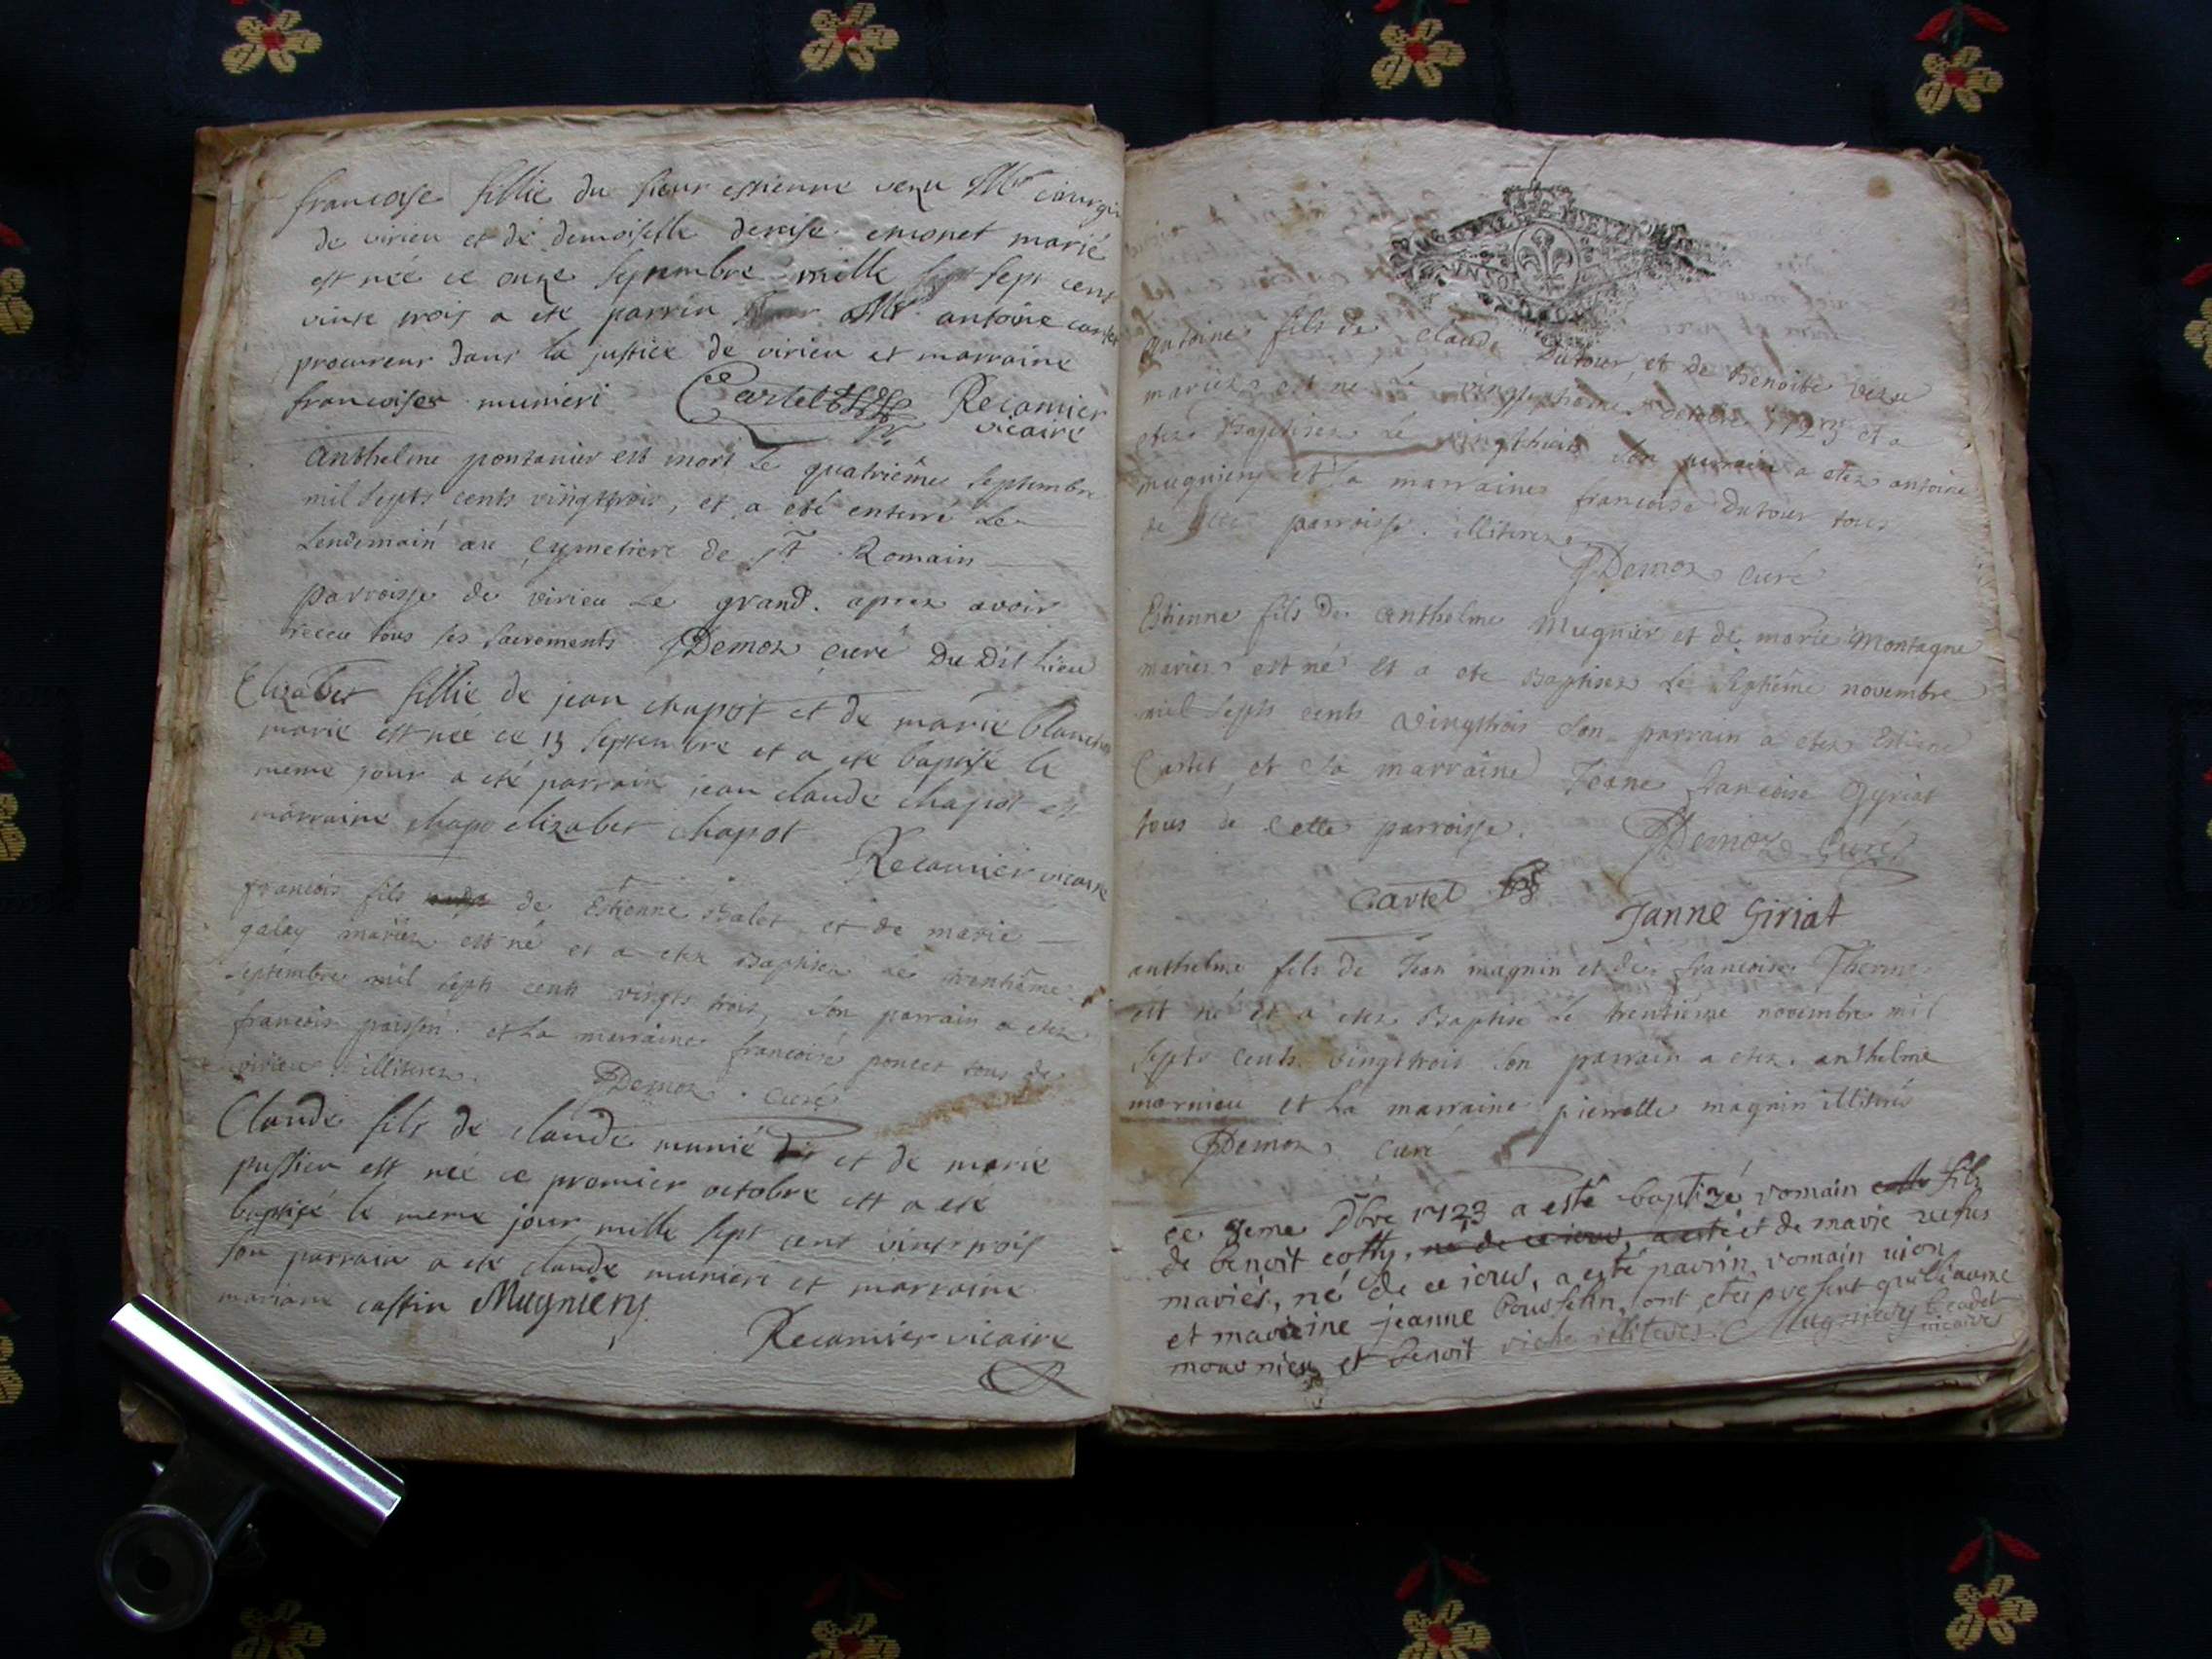 francoise fillie du sieur estienne venu Mr cirurgi
de virieu et de demoiselle denise emonet marié
est née ce onze septembre mille sept cent
vint trois a eté parrin Mr antoine cartel
procureur dans la justice de virieu et marraine
francoise munieri Cartel Recamier
vicaire
Anthelme ponsanier est mort Le quatrième septembre
mil septs cents vingttrois, et a eté enterré Le
Lendemain au cymetiere de St Romain
parroisse de virieu Le grand. apres avoir
receu tous les sacrements Demoz curé Du Dit Lieu
Elizabet fillie de jean chapot et de marie blanchin
marié est née ce 13 septembre et a eté baptisé le
meme jour a eté parrain jean claude chapot et
marraine chapo elizabet chapot
Recamier vicaire
francois fils de Estienne Balet, et de marie
galay mariez est né et a etez Baptisez Le trentième
septembre mil septs cents vingts trois, son parrain a etez
francois et La marraine francoise poncet tous de
virieu illiterez. Demoz curé
Claude fils de claude munié et de marie
pussieu est né ce promier octobre est a eté
baptisé le meme jour mille sept cent vint trois
son parrain a eté claude munieri et marraine
mariane castin Mugniery
Recamier vicaire
antoine fils de Claude Dutour, et de Benoite venu
mariez est né Le vingtseptième octobre 1723 et a
etez Baptisez Le son parrain a etez antoine
mugniery et La marraine francoise Dutour tous
de cette parroisse. illiterez
Demoz curé
Estienne fils de anthelme Mugnier et de marie Montagne
mariez est né et a eté Baptisez Le septième novembre
mil septs cents vingttrois son parrain a etez Estiene
Cartel et sa marraine Jeane francoise Gyriat
tous de Cette parroisse. Demoz Curé
Cartel
Janne Giriat
anthelme fils de Jean magnin et de francoise
est né et a etez Baptisé Le trentième novembre mil
septs cents vingttrois son parrain a etez anthelme
mornieu et La marraine pierrette magnin illiterés
Demoz curé
ce 9eme Dbre 1723 a esté baptizé romain fils
de benoit cotty, né de ce iour, a esté et de marie rufus
mariés, né de ce iour, a esté parrin romain uion
et maraine jeanne ont etés present guillaume
mournieu et benoit riche illiteres. Mugniery Le cadet
vicaire